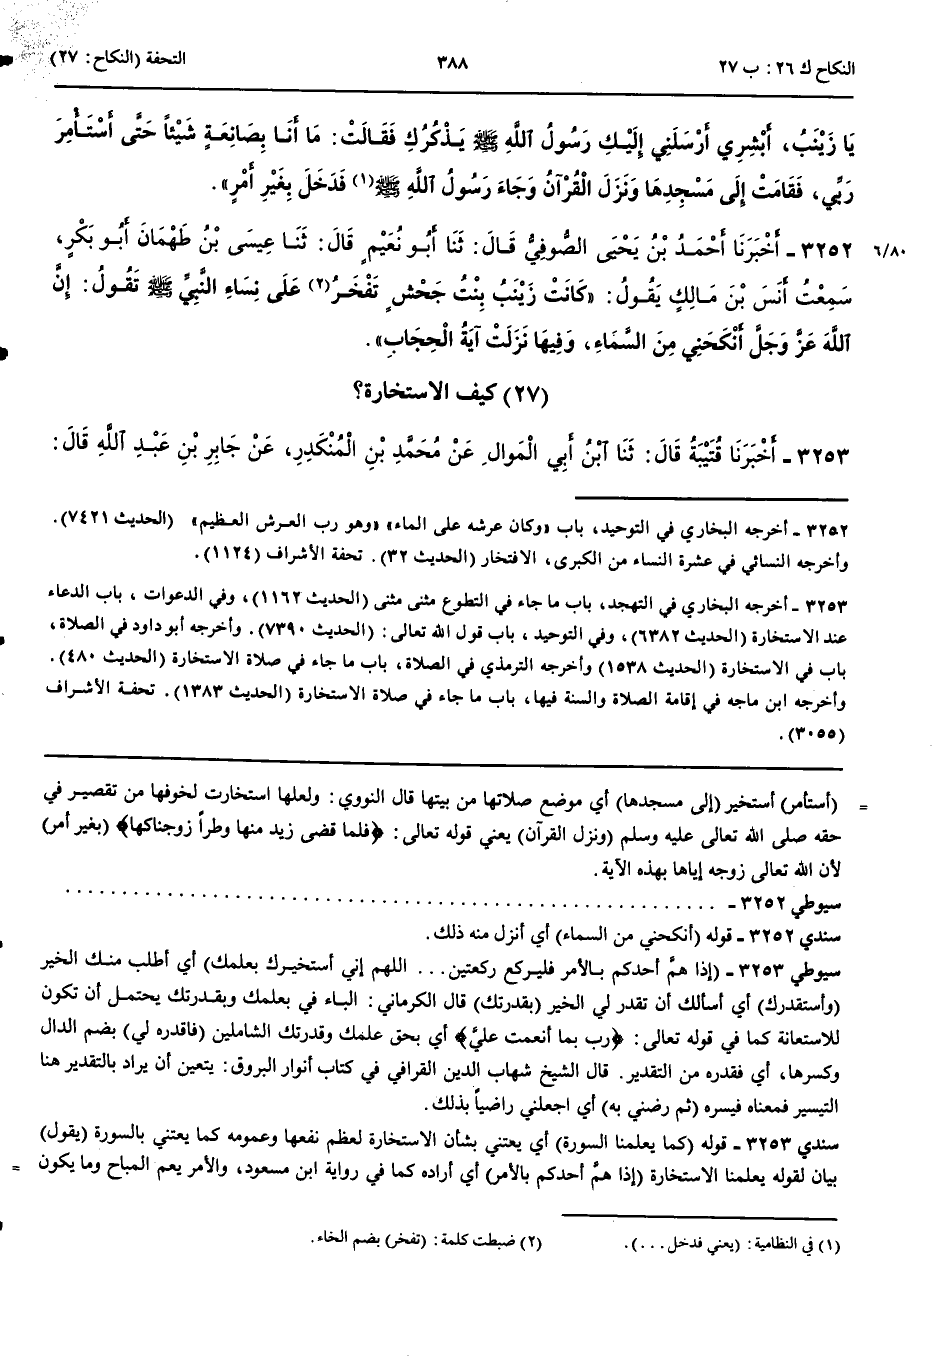 النكاح ك ٢٦ : ب ٢٧ ٣٨٨ التحفة (النكاح: ٢٧)
يَا زَيْنَبُ، أَبْشِرِي أَرْسَلَنِي إِلَيْكِ رَسُولُ اللَّهِ ﷺ يَذْكُرُكِ فَقَالَتْ: مَا أَنَا بِصَانِعَةٍ شَيْئاً حَتَّى أَسْتَأْمِرَ
رَبِّي، فَقَامَتْ إِلَى مَسْجِدِهَا وَنَزَلَ الْقُرْآنُ وَجَاءَ رَسُولُ اللَّهِ ﷺ(١) فَدَخَلَ بِغَيْرِ أَمْرٍ».
٣٢٥٢ ـ أَخْبَرَنَا أَحْمَدُ بْنُ يَحْيَى الصُّوفِيُّ قَالَ: ثَنَا أَبُو نُعَيْمٍ قَالَ: ثَنَا عِيسَى بْنُ طَهْمَانَ أَبُو بَكْرٍ، ٦/٨٠
سَمِعْتُ أَنَسَ بْنَ مَالِكٍ يَقُولُ: «كَانَتْ زَيْنَبُ بِنْتُ جَحْشٍ تَفْخَرُ(٢) عَلَى نِسَاءِ النَّبِيِّ ﷺ تَقُولُ: إِنَّ
اللَّهَ عَزَّ وَجَلَّ أَنْكَحَنِي مِنَ السَّمَاءِ، وَفِيهَا نَزَلَتْ آيَةُ الْحِجَابِ».
(٢٧) كيف الاستخارة؟
٣٢٥٣ ـ أَخْبَرَنَا قُتَيْبَةُ قَالَ: ثَنَا ابْنُ أَبِي الْمَوالِ عَنْ مُحَمَّدِ بْنِ الْمُنْكَدِرِ، عَنْ جَابِرِ بْنِ عَبْدِ اللَّهِ قَالَ:
٣٢٥٢ ـ أخرجه البخاري في التوحيد، باب «وكان عرشه على الماء» «وهو رب العرش العظيم» (الحديث ٧٤٢١).
وأخرجه النسائي في عشرة النساء من الكبرى، الافتخار (الحديث ٣٢). تحفة الأشراف (١١٢٤).
٣٢٥٣ ـ أخرجه البخاري في التهجد، باب ما جاء في التطوع مثنى مثنى (الحديث ١١٦٢)، وفي الدعوات، باب الدعاء
عند الاستخارة (الحديث ٦٣٨٢)، وفي التوحيد، باب قول الله تعالى: (الحديث ٧٣٩٠). وأخرجه أبو داود في الصلاة،
باب في الاستخارة (الحديث ١٥٣٨) وأخرجه الترمذي في الصلاة، باب ما جاء في صلاة الاستخارة (الحديث ٤٨٠).
وأخرجه ابن ماجه في إقامة الصلاة والسنة فيها، باب ما جاء في صلاة الاستخارة (الحديث ١٣٨٣). تحفة الأشراف
(٣٠٥٥).
= (أستأمر) أستخير (إلى مسجدها) أي موضع صلاتها من بيتها قال النووي: ولعلها استخارت لخوفها من تقصير في
حقه صلى الله تعالى عليه وسلم (ونزل القرآن) يعني قوله تعالى: ﴿فلما قضى زيد منها وطراً زوجناكها﴾ (بغير أمر)
لأن الله تعالى زوجه إياها بهذه الآية.
سيوطي ٣٢٥٢ ـ . . . . . . . . . . . . . . . . . . . . . . . . . . . . . .
سندي ٣٢٥٢ ـ قوله (أنكحني من السماء) أي أنزل منه ذلك.
سيوطي ٣٢٥٣ ـ (إذا همَّ أحدكم بالأمر فليركع ركعتين... اللهم إني أستخيرك بعلمك) أي أطلب منك الخير
(وأستقدرك) أي أسألك أن تقدر لي الخير (بقدرتك) قال الكرماني: الباء في بعلمك وبقدرتك يحتمل أن تكون
للاستعانة كما في قوله تعالى: ﴿رب بما أنعمت عليَّ﴾ أي بحق علمك وقدرتك الشاملين (فاقدره لي) بضم الدال
وكسرها، أي فقدره من التقدير. قال الشيخ شهاب الدين القرافي في كتاب أنوار البروق: يتعين أن يراد بالتقدير هنا
التيسير فمعناه فيسره (ثم رضني به) أي اجعلني راضياً بذلك.
سندي ٣٢٥٣ ـ قوله (كما يعلمنا السورة) أي يعتني بشأن الاستخارة لعظم نفعها وعمومه كما يعتني بالسورة (يقول)
بيان لقوله يعلمنا الاستخارة (إذا همَّ أحدكم بالأمر) أي أراده كما في رواية ابن مسعود، والأمر يعم المباح وما يكون =
(١) في النظامية: (يعني فدخل...). (٢) ضبطت كلمة: (تفخر) بضم الخاء.